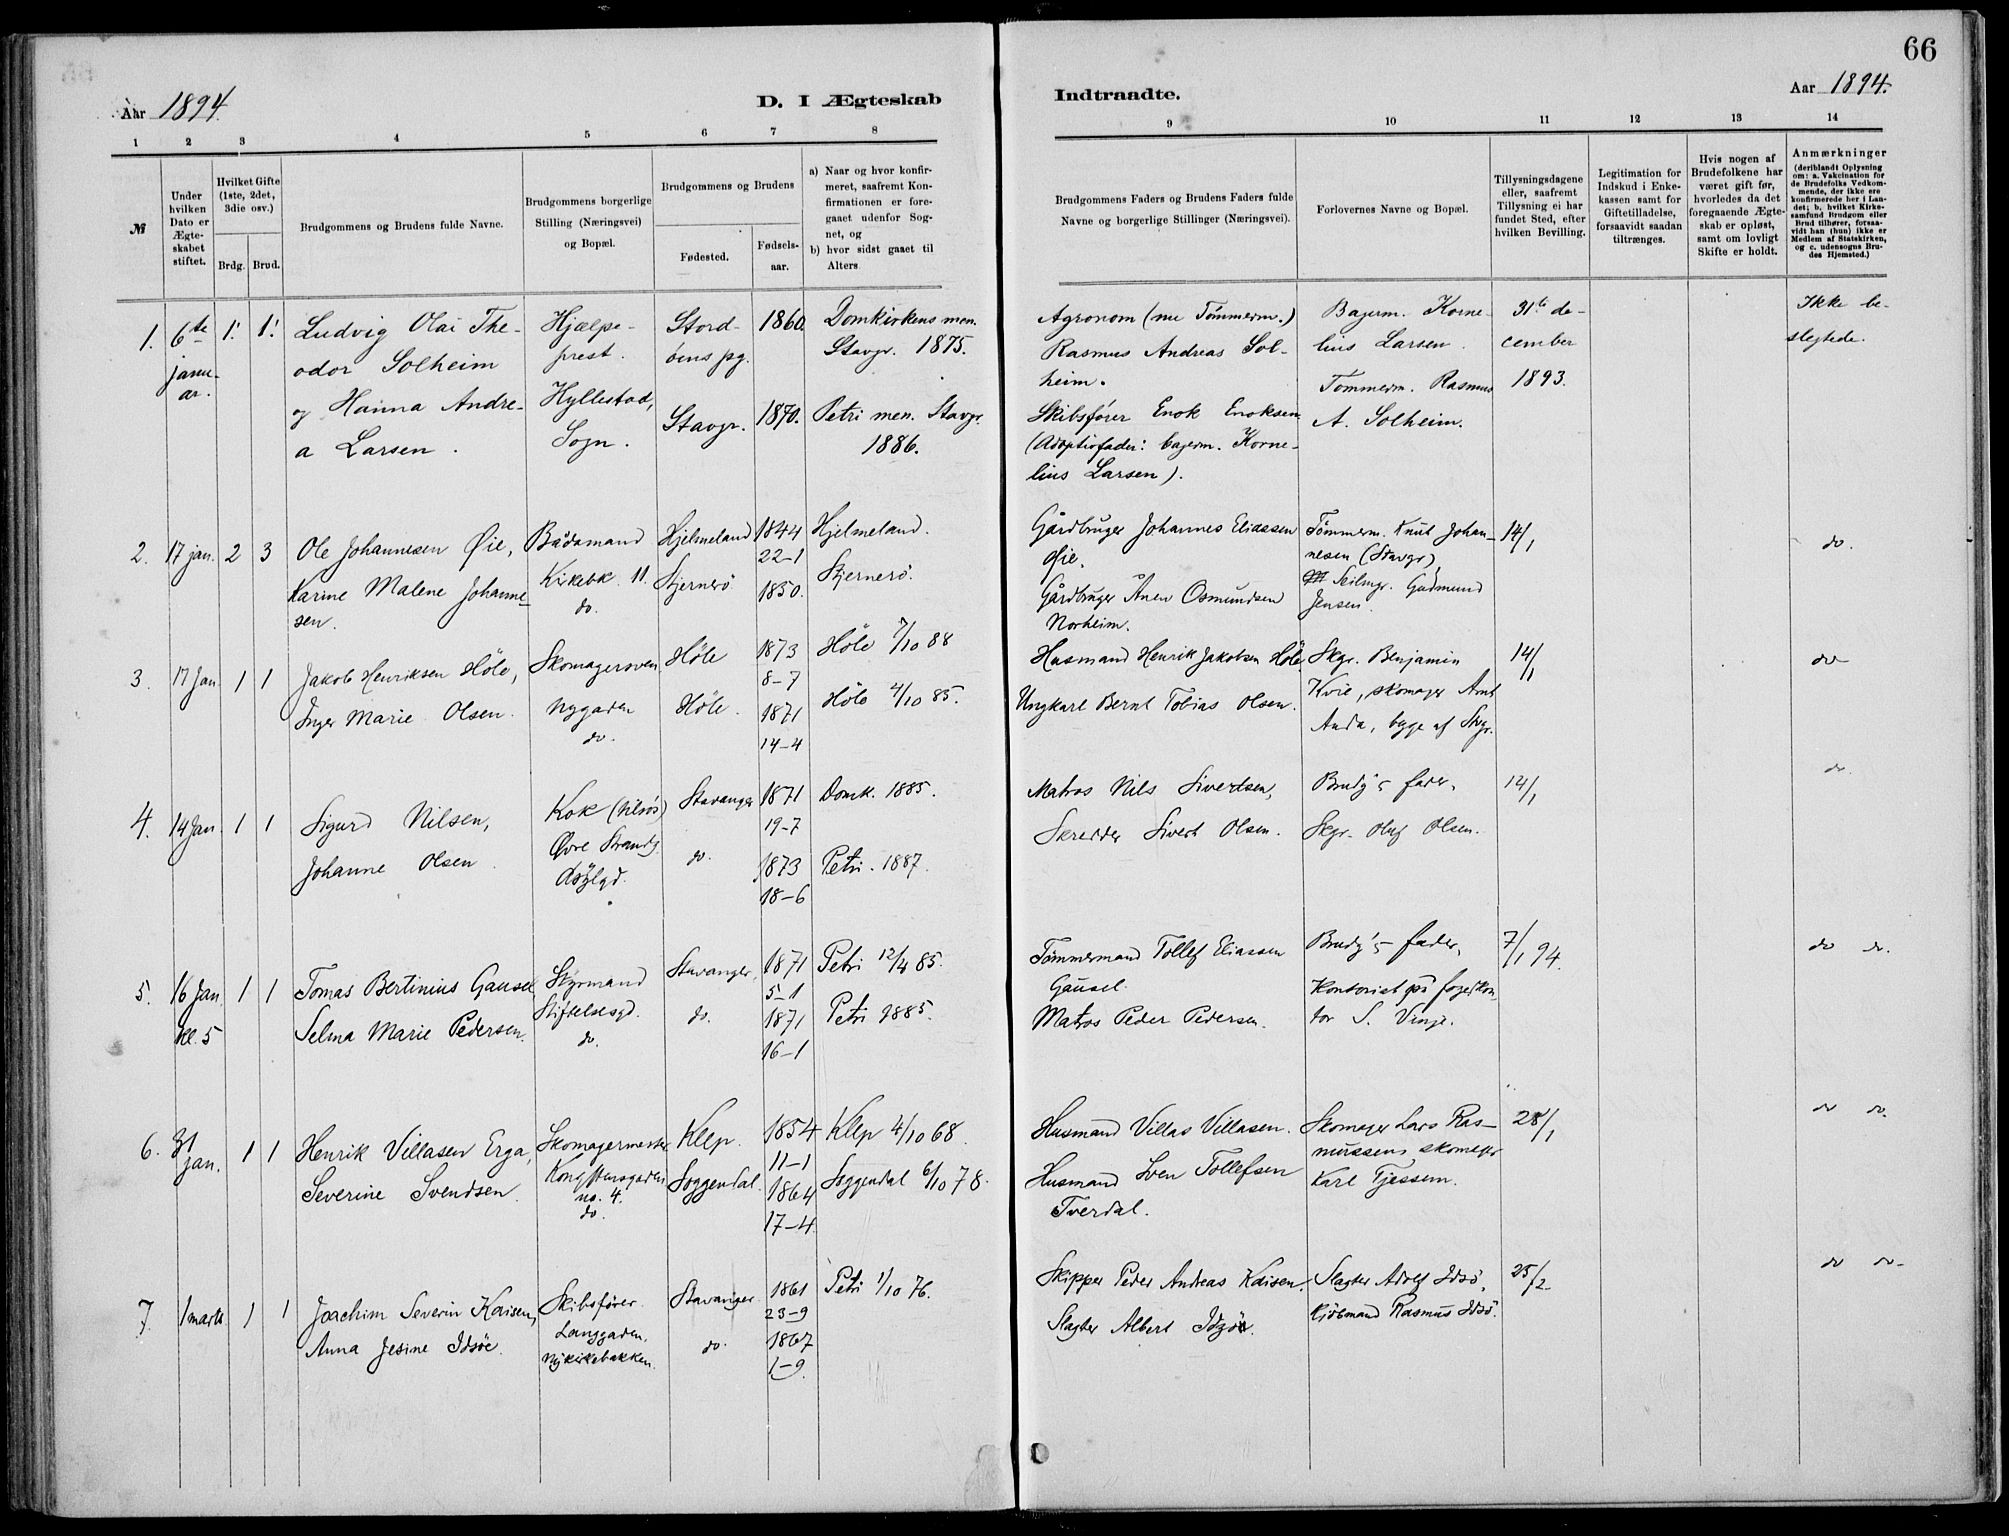 66
Aar 1894.
D. I Ægteskab
Indtraadte.
Aar 1894.
1 2 3 4 5 6 7 8
9 10 11 12 13 14
№
Under hvilken Dato er Ægteskabet stiftet.
Hvilket Gifte (1ste, 2det, 3die osv.)
Brdg. Brud.
Brudgommens og Brudens fulde Navne.
Brudgommens borgerlige Stilling (Næringsvei) og Bopæl.
Brudgommens og Brudens
Fødested.
Fødselsaar.
a) Naar og hvor konfirmeret, saafremt Konfirmationen er foregaaet udenfor Sognet, og
b) hvor sidst gaaet til Alters
Brudgommens Faders og Brudens Faders fulde Navne og borgerlige Stillinger (Næringsvei).
Forlovernes Navne og Bopæl.
Tillysningsdagene eller, saafremt Tillysning ei har fundet Sted, efter hvilken Bevilling.
Legitimation for Indskud i Enkekassen samt for Giftetilladelse, forsaavidt saadan tiltrænges.
Hvis nogen af Brudefolkene har været gift før, hvorledes da det foregaaende Ægteskab er opløst, samt om lovligt Skifte er holdt.
Anmærkninger
(deriblandt Oplysning om: a. Vakcination for de Brudefolks Vedkommende, der ikke ere konfirmerede her i Landet; b. hvilket Kirkesamfund Brudgom eller Brud tilhører, forsaavidt han (hun) ikke er Medlem af Statskirken, og c. udensogns Brudes Hjemsted.)
1. 6te januar. 1. 1.
Ludvig Olai Theodor Solheim
og Hanna Andrea Larsen.
Hjælpeprest.
Hyllestad, Sogn.
Stordöens pg. 1860. Domkirkens men. Stavgr. 1875.
Stavgr. 1870. Petri men. Stavgr. 1886.
Agronom (nu Tömmerm.) Rasmus Andreas Solheim.
Skibsfører Enok Enoksen (Adoptivfader: bagerm. Kornelius Larsen).
Bagerm. Kornelius Larsen.
Tømmerm. Rasmus A. Solheim.
31te december 1893.
Ikke beslegtede.
2. 17 jan. 2 3
Ole Johannesen Øie,
Karine Malene Johannesen.
Bådsmand
Kirkebk. 11.
do.
Hjelmeland 1844 22-1 Hjelmeland.
Sjernerö 1850. Sjernerö.
Gårdbruger Johannes Eliassen Øie.
Gårdbruger Ånen Osmundsen Norheim.
Tömmerm. Knut Johannesen (Stavgr)
Seilmgr. Gudmund Jensen.
14/1
do.
3. 17 Jan 1 1
Jakob Henriksen Höle,
Inger Marie Olsen.
Skomagersven
Nygaden
do.
Höle 1873 8-7 Höle 7/10 88
Höle. 1871 14-4 Höle 4/10 85.
Husmand Henrik Jakobsen Höle
Ungkarl Bernt Tobias Olsen.
Skgr. Benjamin Kvie, skomager Amt Anda, begge af Stvgr.
14/1
do
4. 14 Jan. 1 1
Sigurd Nilsen,
Johanne Olsen.
Kok (tilsös)
Øvre Strandg.
Stavanger 1871 19-7 Domk. 1885.
do. 1873 18-6 Petri. 1887.
Matros Nils Sivertsen,
Skredder Sivert Olsen.
Brudg's fader.
Skgr. Oluf Olsen.
14/1
do.
5. 16 Jan. kl. 5 1 1
Tomas Bertinius Gausel
Selma Marie Pedersen.
Styrmand
Stiftelsesgd.
do.
Stavanger, 1871 5-1 Petri 12/4 85.
do. 1871 16-1 Petri 1885.
Tömmermand Tollef Eliassen Gausel.
Matros Peder Pedersen.
Brudg's fader,
Kontorist på fogedkontor S. Vinje.
7/1 94.
do do.
6. 31 jan. 1 1
Henrik Villasen Erga,
Severine Svendsen.
Skomagermester
Kongstensgaden no. 4.
do.
Klep. 1854 11-1 Klep 4/10 68.
Soggendal. 1864 17-4. Soggendal 6/10 78.
Husmand Villas Villasen.
Husmand Sven Tollefsen Tverdal.
Skomager Lars Rasmussen, skomager Karl Tjessem.
28/1
do do.
7. 1 marts. 1 1
Joachim Severin Kaisen,
Anna Jesine Idsöe.
Skibsfører.
Langgaden.
Nykirkebakken.
Stavanger 1861 23-9 Petri 1/10 76.
do. 1867 1-9.
Skipper Peder Andreas Kaisen.
Slagter Albert Idsöe.
Slagter Adolf Idsö,
Kjöbmand Rasmus Idsö.
25/2
do do.